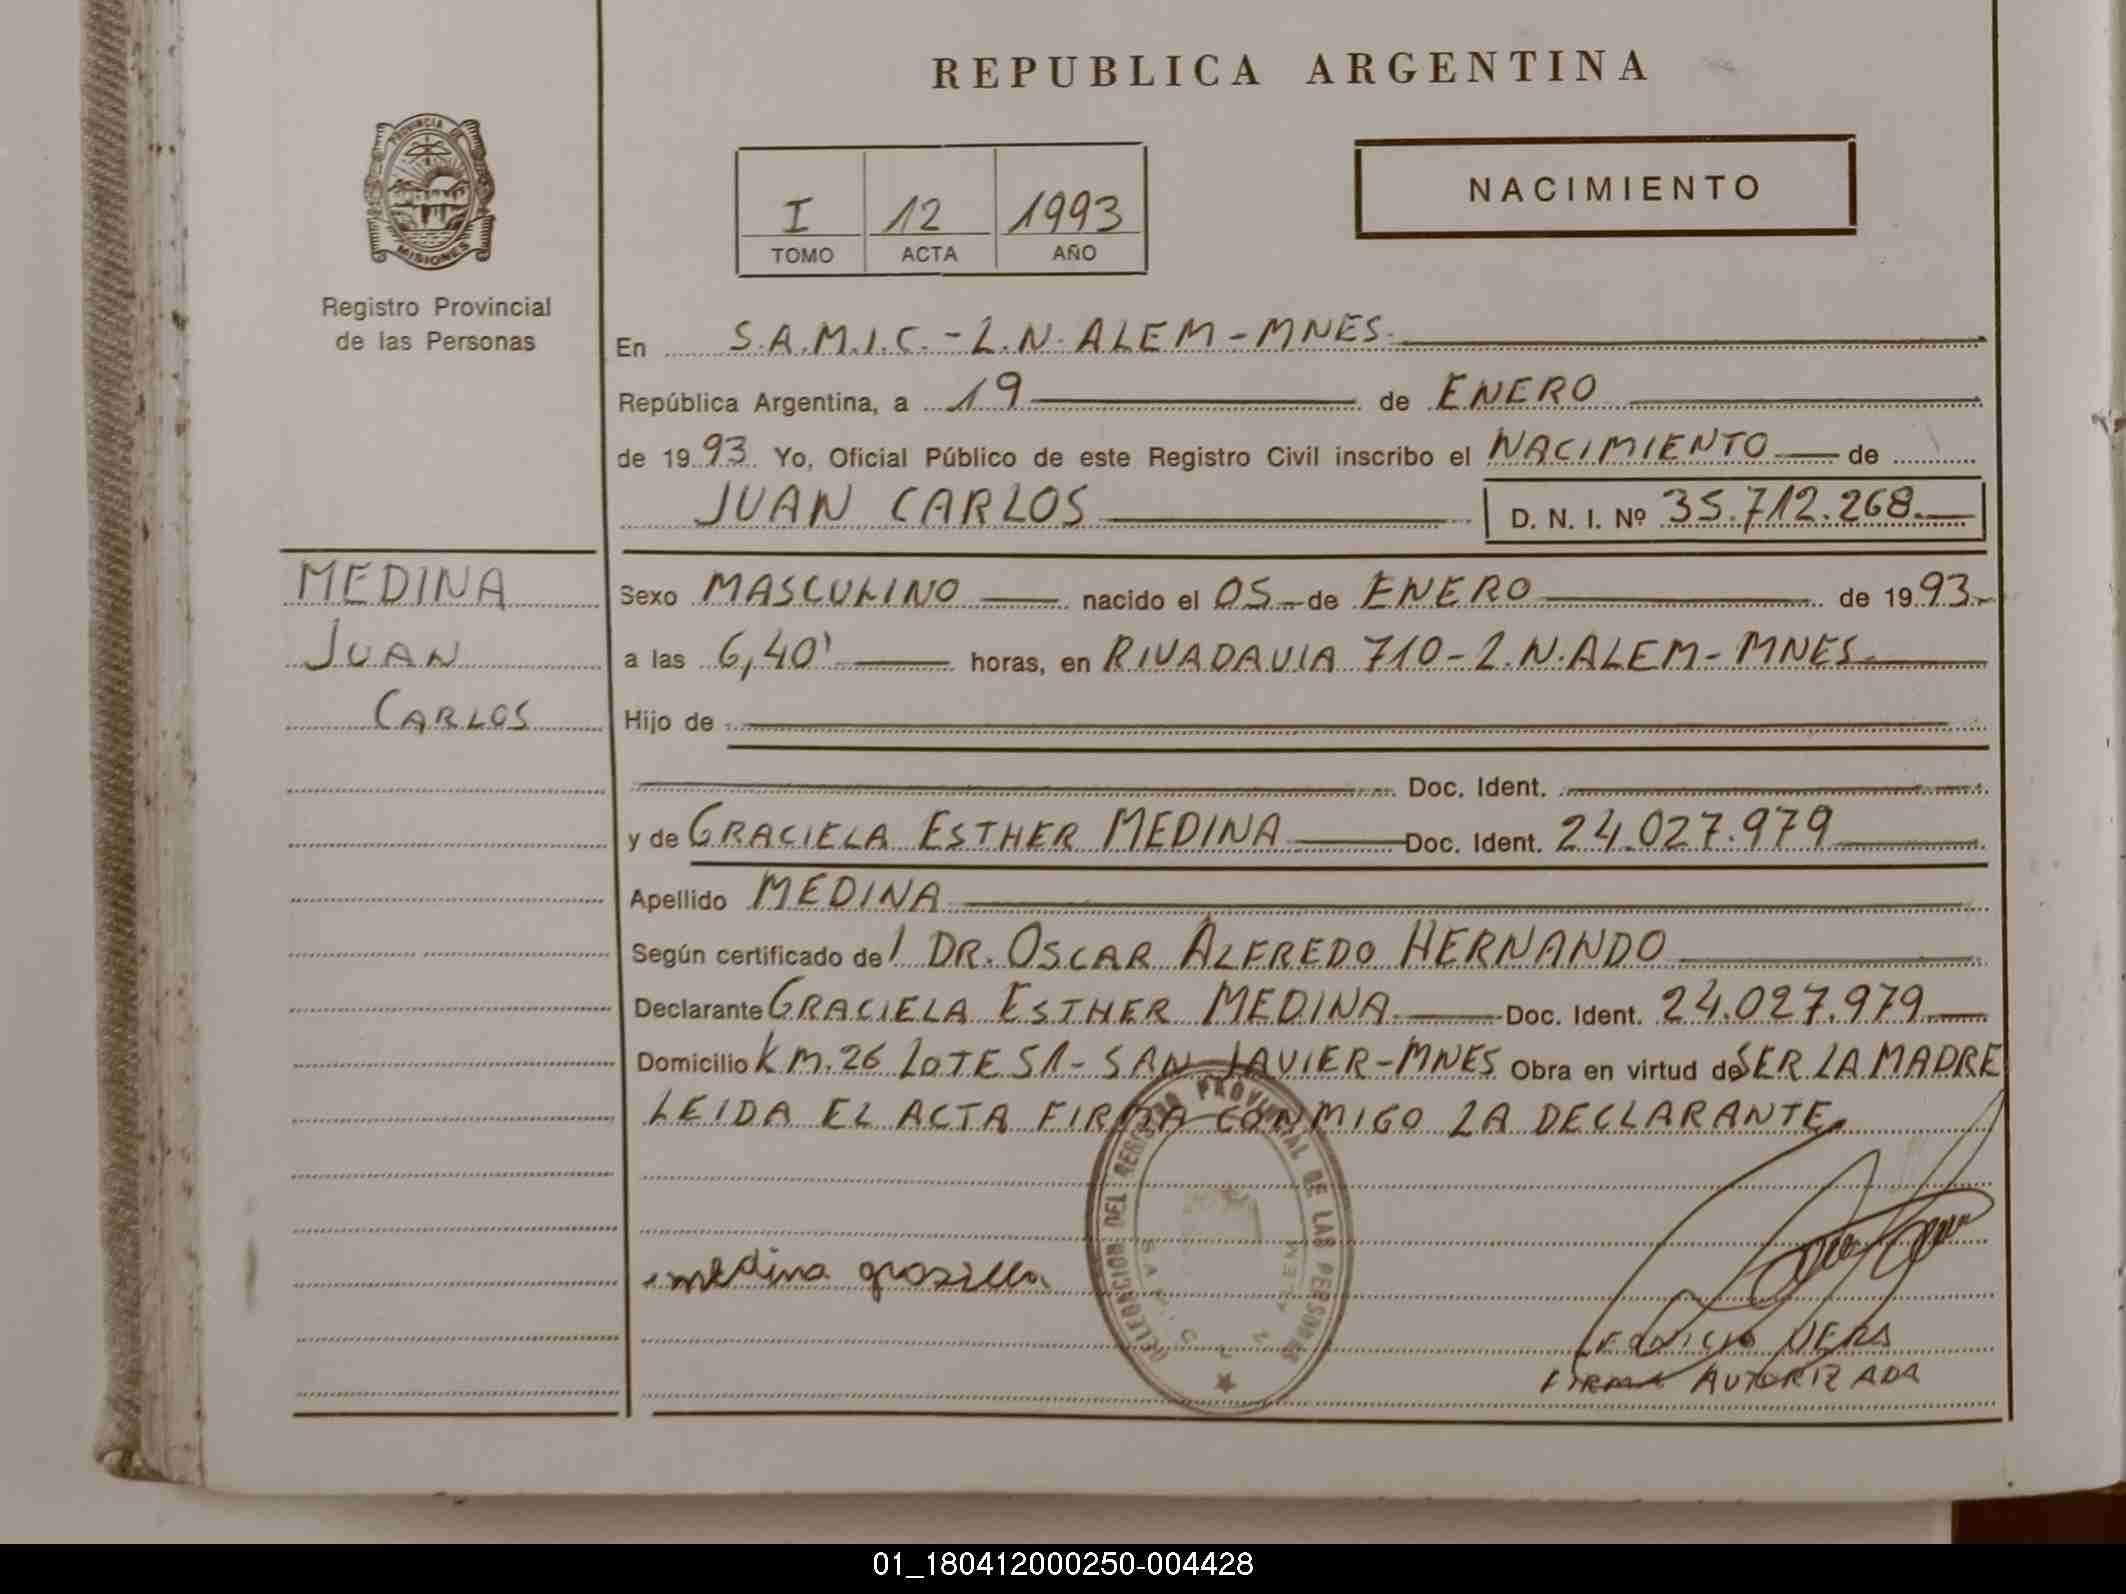 REPUBLICA ARGENTINA
PROVINCIA DE
MISIONES
Registro Provincial
de las Personas
I 12 1993
TOMO ACTA AÑO
NACIMIENTO
En S.A.M.I.C. - L.N. ALEM - MNES.
República Argentina, a 19 de ENERO
de 1993. Yo, Oficial Público de este Registro Civil inscribo el NACIMIENTO de
JUAN CARLOS D. N. I. Nº 35.712.268.
MEDINA
JUAN
CARLOS
Sexo MASCULINO nacido el 05 de ENERO de 1993
a las 6,40' horas, en RIVADAVIA 710 - L.N. ALEM - MNES.
Hijo de
Doc. Ident.
y de GRACIELA ESTHER MEDINA Doc. Ident. 24.027.979
Apellido MEDINA
Según certificado del DR. OSCAR ALFREDO HERNANDO
Declarante GRACIELA ESTHER MEDINA Doc. Ident. 24.027.979
Domicilio KM. 26 LOTE 51 - SAN JAVIER - MNES Obra en virtud de SER LA MADRE
LEIDA EL ACTA FIRMA CONMIGO LA DECLARANTE.
DELEGACION DEL REGISTRO PROVINCIAL DE LAS PERSONAS
medina grasiella
VERA
FIRMA AUTORIZADA
01_180412000250-004428